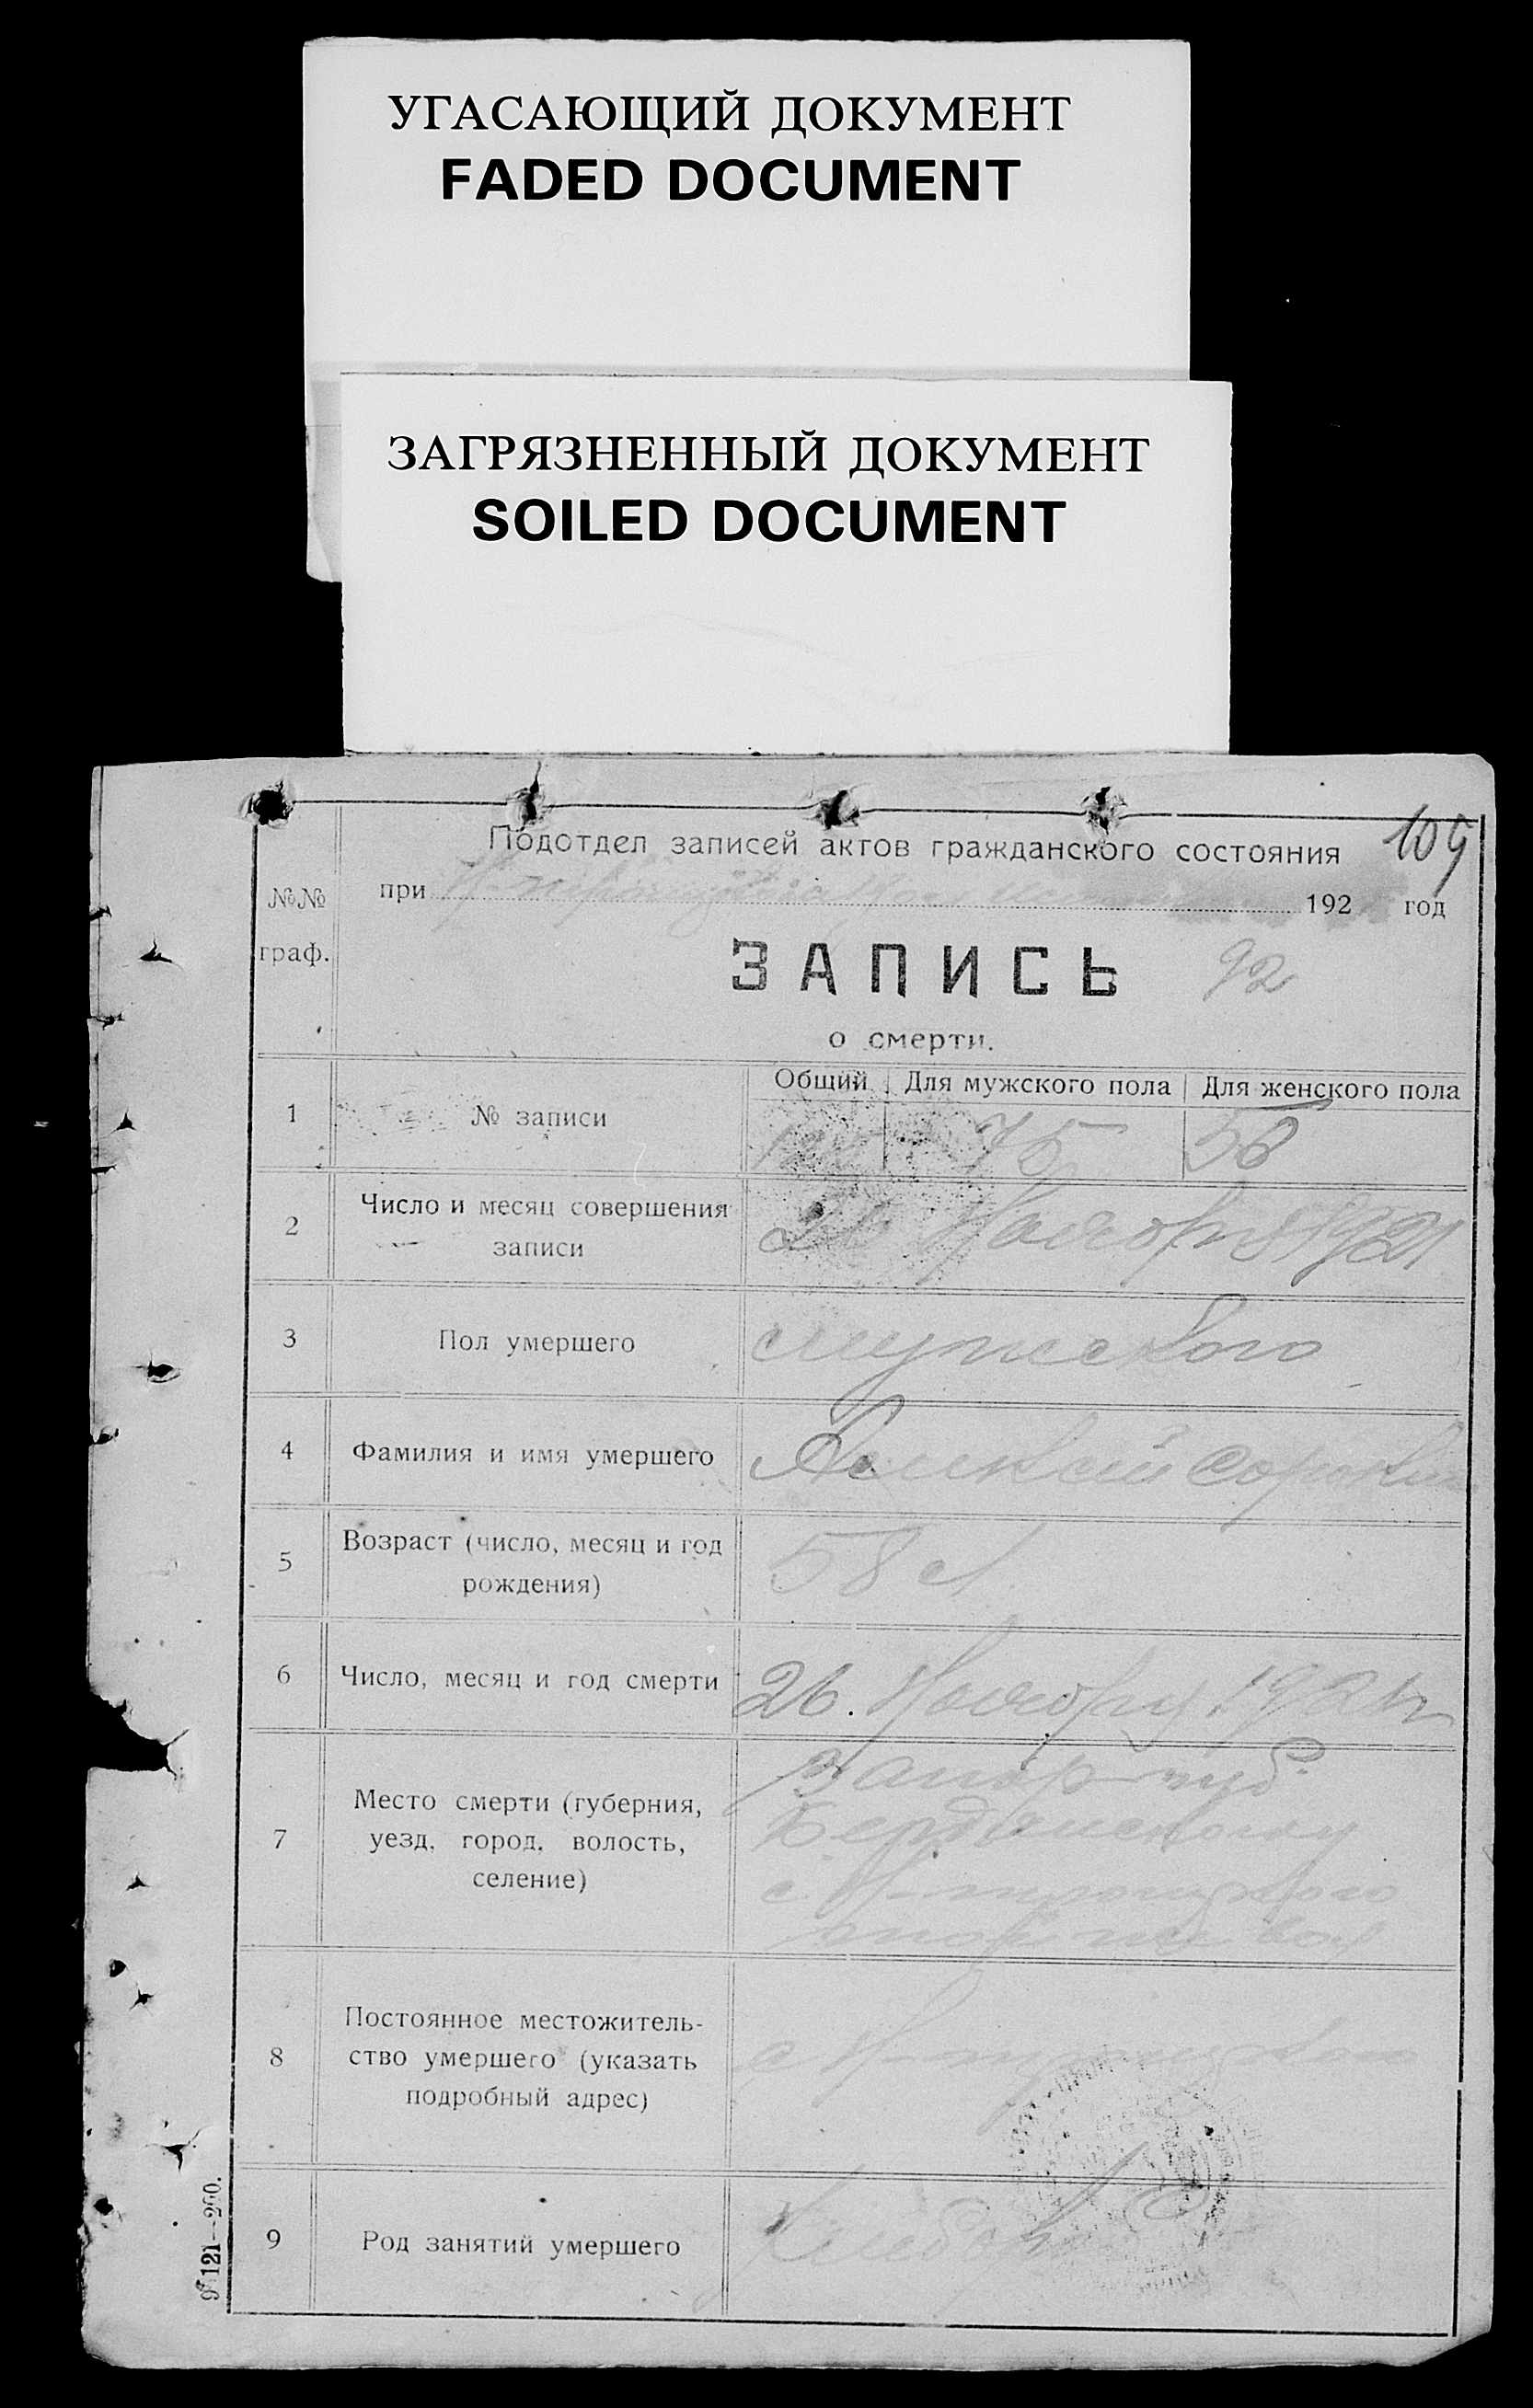 УГАСАЮЩИЙ ДОКУМЕНТ
FADED DOCUMENT
ЗАГРЯЗНЕННЫЙ ДОКУМЕНТ
SOILED DOCUMENT
109
Подотдел записей актов гражданского состояния
№№ граф.
при 192 год
ЗАПИСЬ 92
о смерти.
Общий Для мужского пола Для женского пола
1 № записи 75 56
2 Число и месяц совершения
записи
26 Ноября 1921
3 Пол умершего мужского
4 Фамилия и имя умершего Сорокин
5 Возраст (число, месяц и год
рождения)
58 л
6 Число, месяц и год смерти 26. Ноября 1921 г
7 Место смерти (губерния,
уезд, город, волость,
селение)
Запор губ.
Бердянского у
с. Н-
вол
8 Постоянное местожитель-
ство умершего (указать
подробный адрес)
с Н-
9 Род занятий умершего Хлебороб
121—200.